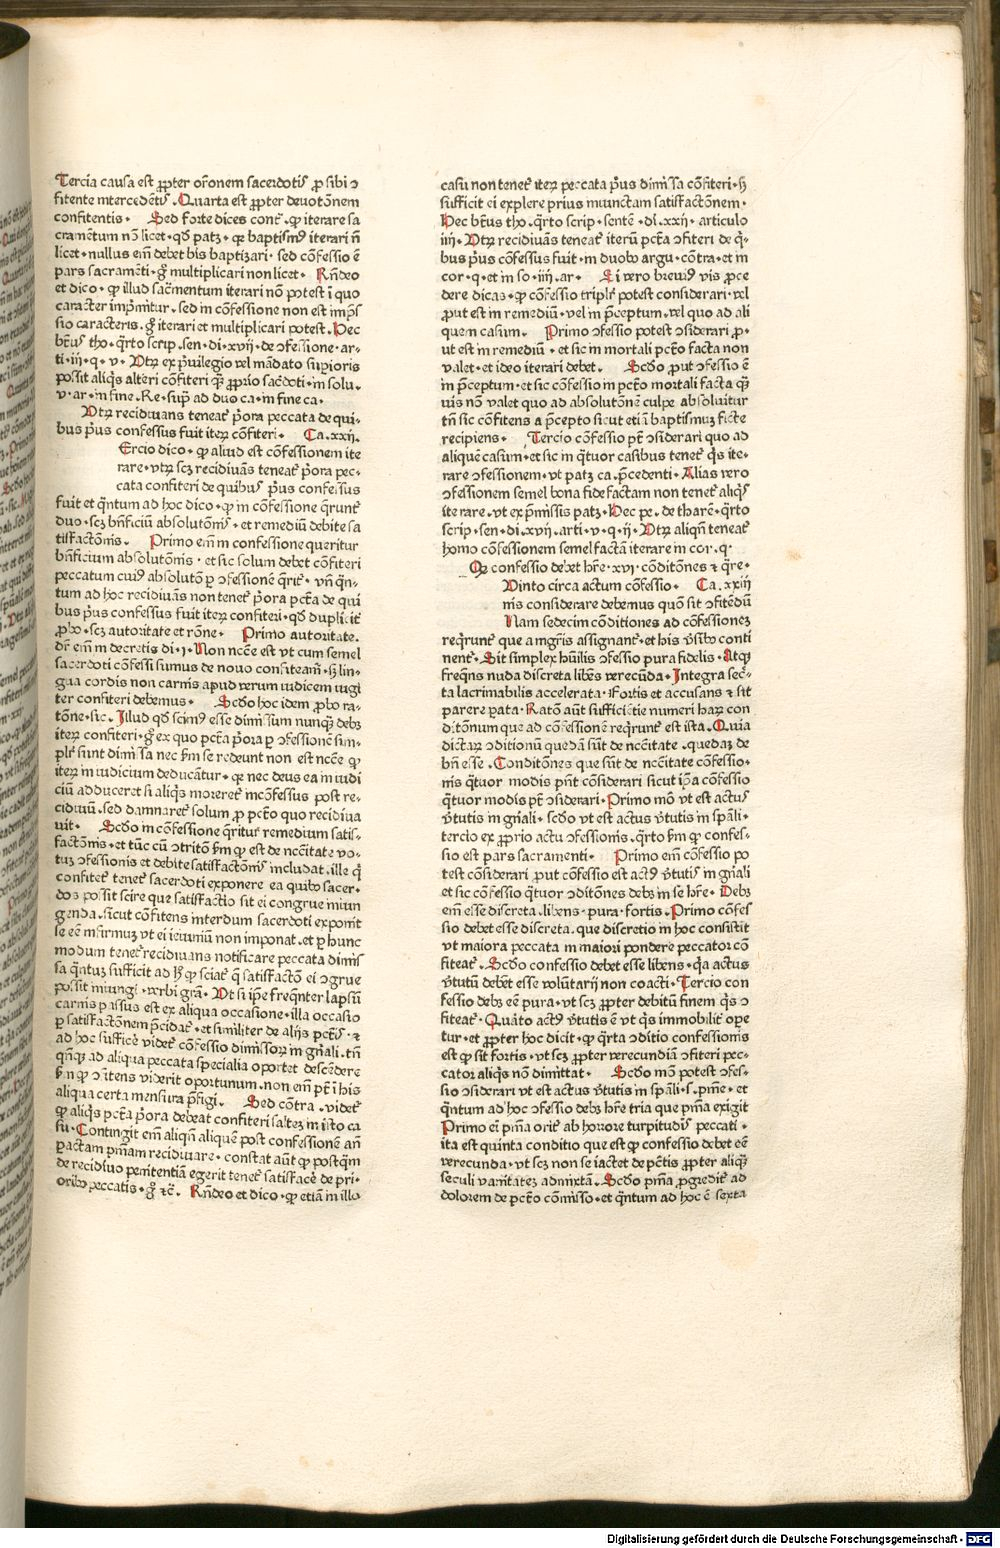 Tercia causa est ꝓpter or̄onem sacerdotis ꝓ sibi ↄ
fitente intercedētis. Quarta est ꝓpter deuotōnem
confitentis. Sed forte dices cont̄. ꝙ iterare sa
cramētum nō licet. qd̄ patꝫ. qꝛ baptismꝰ iterari nō
licet. nullus em̄ debet bis baptizari. sed cōfessio ē
pars sacramēti. gͦ multiplicari non licet. Rn̄deo
et dico. ꝙ illud sac̄mentum iterari nō potest ī quo
caracter imprīmitur. sed in cōfessione non est imp̄s
sio caracteris. gͦ iterari et multiplicari potest. Hec
bt̄us tho. q̄rto scrip. sen. di. xvij. de ↄfessione. ar-
ti. iij. q. v. Utꝝ ex p̄uilegio vel mādato supioris
possit aliq̄s alteri cōfiteri q̄ꝫ ꝓprio sac̄doti. in solu.
v. ar. in fine. Re. sup̄ ad duo ca. in fine ca.
Utꝝ recidiuans teneat᷑ p̄ora peccata de qui-
bus p̄us confessus fuit iteꝝ cōfiteri. Ca. xxij.
Ercio dico. ꝙ aliud est cōfessionem ite
rare. vtꝝ scꝫ recidiuās teneat᷑ p̄ora pec-
cata confiteri de quibus p̄us confessus
fuit et q̄ntum ad hoc dico. ꝙ in cōfessione q̄runt᷑
duo. scꝫ bn̄ficiū absolutōnis. et remediū debite sa
tisfactōnis. Primo em̄ in confessione queritur
bn̄ficium absolutōnis. et sic solum debet cōfiteri
peccatum cuiꝰ absolutō ꝑ ↄfessionē q̄rit᷑. vn̄ q̄n-
tum ad hoc recidiuās non tenet᷑ p̄ora pctā de qui
bus p̄us confessus fuit iteꝝ confiteri. qd̄ duplicit᷑
ꝓbo. scꝫ autoritate et rōne. Primo autoritate.
dr̄ em̄ in decretis di. j. Non ncēe est vt cum semel
sacerdoti cōfessi sumus de nouo confiteam᷑. ſꝫ lin-
gua cordis non carnis apud verum iudicem iugi
ter confiteri debemus. Scdo hoc idem ꝓbo ra-
tōne. sic. Illud qd̄ scimꝰ esse dimissum nunq̄ꝫ debꝫ
iteꝝ confiteri. gͦ ex quo pctā p̄ora ꝑ ↄfessionē sim-
plr̄ sunt dimissa nec s̄m se redeunt non est ncēe ꝙ
iteꝝ in iudicium deducātur. qꝛ nec deus ea in iudi
ciū adduceret si aliq̄s moreret᷑ incōfessus post re-
cidiuū. sed damnaret᷑ solum ꝓ pctō quo recidiua
uit. Scdo in cōfessione q̄ritur remedium satis-
factōnis. et tūc cū ↄtritō s̄m ꝙ est de ncēitate vo-
tuꝫ ↄfessionis et debite satisfactōnis includat. ille q̄
confitet᷑ tenet᷑ sacerdoti exponere ea quibꝰ sacer-
dos possit scire que satisfactio sit ei congrue iniun
genda. sicut cōfitens interdum sacerdoti exponit
se eē infirmuꝫ vt ei ieiuniū non imponat. et ꝑ hunc
modum tenet᷑ recidiuans notificare peccata dimis
sa q̄ntuꝫ sufficit ad hͦ ꝙ sciat᷑ q̄ satisfactō ei ↄgrue
possit iniungi. verbi grā. Ut si ip̄e freq̄nter lapsū
carnis passus est ex aliqua occasione. illa occasio
ꝑ satisfactōnem p̄cidat᷑. et similiter de alijs pctīs. ⁊
ad hoc sufficē videt᷑ cōfessio dimissoꝝ in gn̄ali. tn̄
qn̄qꝫ ad aliqua peccata specialia oportet descēdere
s̄m ꝙ ↄfitens viderit oportunum. non em̄ pt̄ ī his
aliqua certa mensura p̄figi. Sed cōtra. videt᷑
ꝙ aliq̄s pctā p̄ora debeat confiteri saltē in isto ca
su. Contingit em̄ aliqn̄ aliquē post confessionē an̄
ꝑactam pn̄iam recidiuare. constat aūt ꝙ postq̄m
de recidiuo penitentiā egerit tenet᷑ satisfacē de pri-
oribꝰ peccatis. gͦ ⁊c̄. Rn̄deo et dico. ꝙ etiā in illo
casu non tenet᷑ iteꝝ peccata p̄us dimissa cōfiteri. ſꝫ
sufficit ei explere prius iniunctam satisfactōnem.
Hec bt̄us tho. q̄rto scrip. sentē. di. xxij. articulo
iiij. Utꝝ recidiuās teneat᷑ iterū pctā ↄfiteri de q̄-
bus p̄us cōfessus fuit. in duobꝰ argu. cōtra. et in
cor. q. et in so. iiij. ar. Si vero breuiꝰ vis ꝓce
dere dicas. ꝙ cōfessio triplr̄ potest considerari. vel
ꝓut est in remediū. vel in p̄ceptum. vel quo ad ali
quem casum. Primo ↄfessio potest ↄsiderari ꝓ-
ut est in remediū. et sic in mortali pctō facta non
valet. et ideo iterari debet. Scdo ꝓut ↄfessio ē
in p̄ceptum. et sic cōfessio in pctō mortali facta q̄ꝫ
uis non valet quo ad absolutōnē culpe absoluitur
tn̄ sic cōfitens a p̄cepto sicut etiā baptismuꝫ ficte
recipiens. Tercio cōfessio pt̄ ↄsiderari quo ad
aliquē casum. et sic in q̄tuor casibus tenet᷑ q̄s ite-
rare ↄfessionem. vt patꝫ ca. p̄cedenti. Alias vero
ↄfessionem semel bona fide factam non tenet᷑ aliq̄s
iterare. vt ex p̄missis patꝫ. Hec pe. de tharē. q̄rto
scrip. sen. di. xvij. arti. v. q. ij. Utꝝ aliqn̄ teneat᷑
homo cōfessionem semel factā iterare in cor. q.
Qꝛ confessio debet hr̄e. xvj. cōditōnes ⁊ q̄re.
Uinto circa actum cōfessio. Ca. xxiij
nis considerare debemus quō sit ↄfitēdū
Nam sedecim cōditiones ad cōfessionem
req̄runt᷑ que a mgr̄is assignant᷑. et his v̄sibꝰ conti
nent᷑. Sit simplex hūilis ↄfessio pura fidelis. Atqꝫ
freq̄ns nuda discreta libēs verecūda. Integra sec̄-
ta lacrimabilis accelerata. Fortis et accusans ⁊ sit
parere ꝑata. Ratō aūt sufficiētie numeri haꝝ con
ditōnum que ad cōfessionē req̄runt᷑ est ista. Quia
dictaꝝ ↄditionū quedā sūt de ncēitate. quedaꝫ de
bn̄ esse. Conditōnes que sūt de ncēitate cōfessio-
nis q̄tuor modis pn̄t cōsiderari sicut ip̄a cōfessio
q̄tuor modis pt̄ ↄsiderari. Primo mō vt est actus
v̄tutis in gn̄ali. scdo vt est actus v̄tutis in sp̄ali.
tercio ex ꝓprio actu ↄfessionis. q̄rto s̄m ꝙ confes-
sio est pars sacramenti. Primo em̄ cōfessio po
test cōsiderari ꝓut cōfessio est actꝰ v̄tutis in gn̄ali
et sic cōfessio q̄tuor ↄditōnes debꝫ in se hr̄e. Debꝫ
em̄ esse discreta. libens. pura. fortis. Primo cōfes
sio debet esse discreta. que discretio in hoc consistit
vt maiora peccata in maiori pondere peccator cō
fiteat᷑. Scdo confessio debet esse libens. q̄a actus
v̄tutū debēt esse volūtarij non coacti. Tercio con
fessio debꝫ eē pura. vt scꝫ ꝓpter debitū finem q̄s ↄ
fiteat᷑. Quāto actꝰ v̄tutis ē vt q̄s immobilit᷑ ope
tur. et ꝓpter hoc dicit᷑. ꝙ q̄rta ↄditio confessionis
est ꝙ sit fortis. vt scꝫ ꝓpter verecundiā ↄfiteri pec-
cator aliq̄s nō dimittat. Scdo mō potest ↄfes-
sio ↄsiderari vt est actus v̄tutis in sp̄ali. s. pn̄ie. et
q̄ntum ad hoc ↄfessio debꝫ hr̄e tria que pn̄ia exigit
Primo em̄ pn̄ia orit᷑ ab horore turpitudis peccati.
ita est quinta conditio que est ꝙ confessio debet eē
verecunda. vt scꝫ non se iactet de pctīs ꝓpter aliq̄ꝫ
seculi vanitateꝫ admixtā. Scdo pn̄ia ꝓgredit᷑ ad
dolorem de pctō cōmisso. et q̄ntum ad hoc ē sexta
Digitalisierung gefördert durch die Deutsche Forschungsgemeinschaft - DFG